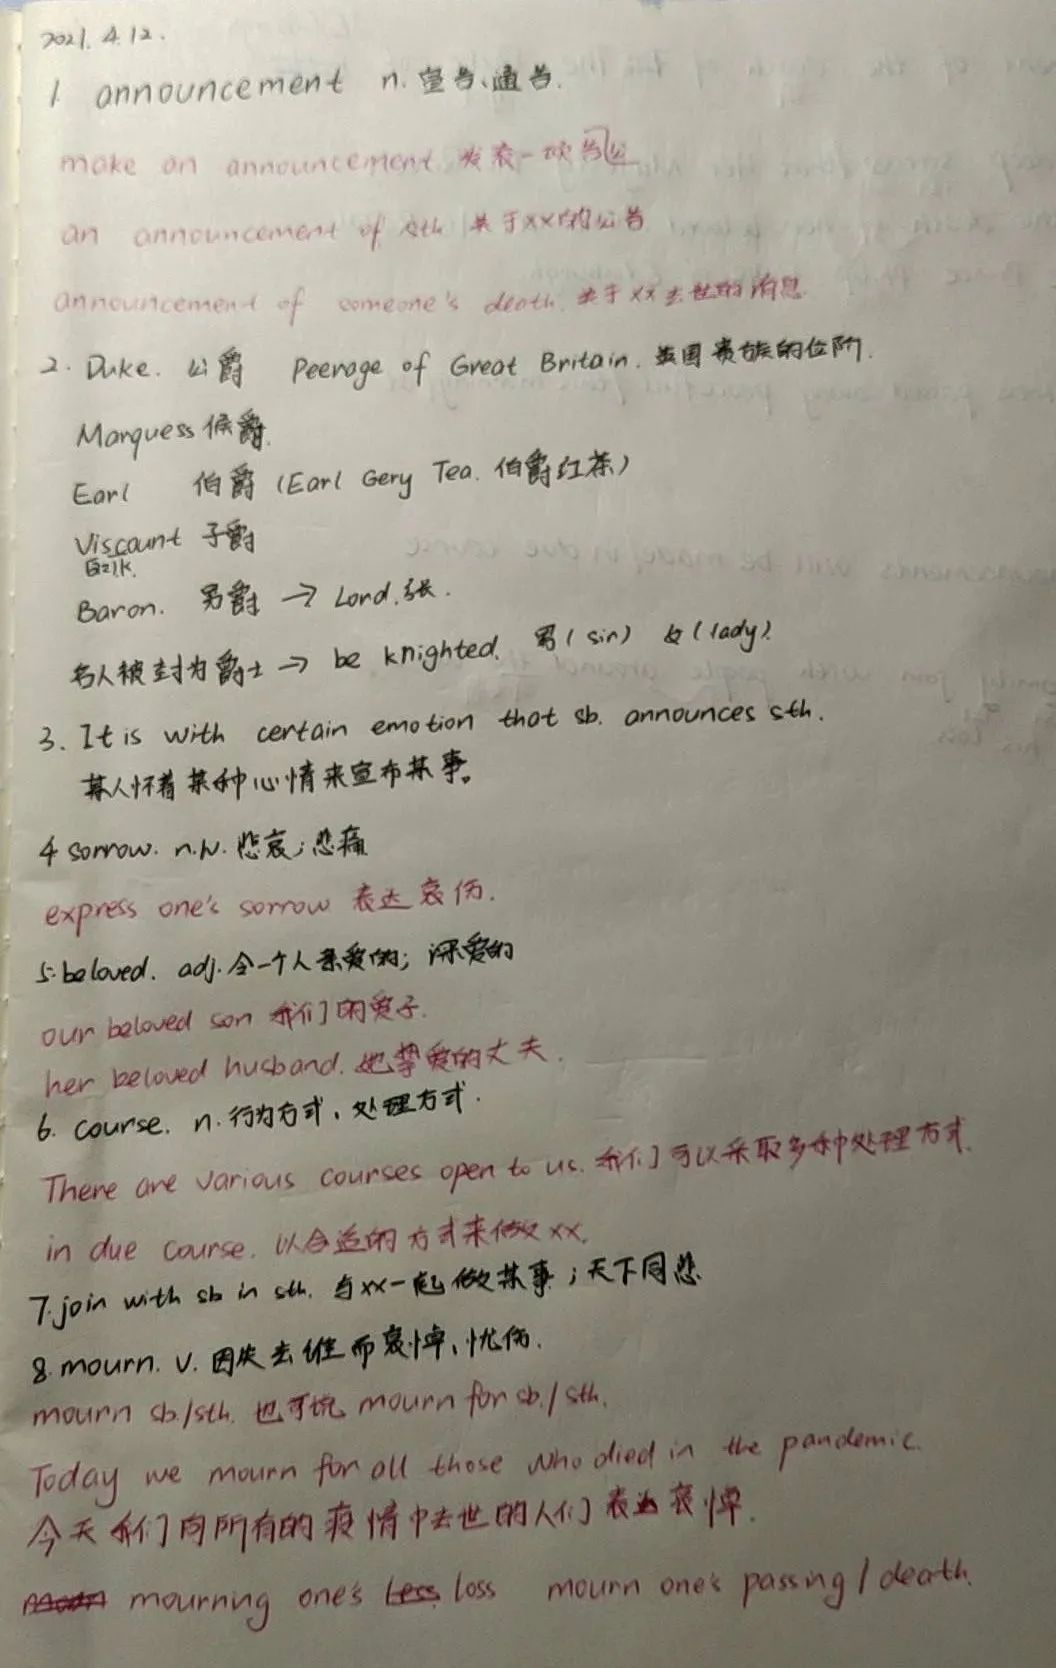 2021. 4. 12.
1. announcement n. 宣告、通告.
make an announcement 发表一项公告
an announcement of sth 关于xx的公告
announcement of someone's death. 关于xx去世的消息
2. Duke. 公爵 Peerage of Great Britain. 英国贵族的位阶.
Marquess 候爵.
Earl 伯爵 (Earl Gery Tea. 伯爵红茶)
Viscount 子爵
Baron. 男爵 → Lord.
名人被封为爵士 → be knighted. 男(sir) 女(lady).
3. It is with certain emotion that sb. announces sth.
某人怀着某种心情来宣布某事。
4 sorrow. n.v. 悲哀;悲痛
express one's sorrow 表达哀伤.
5. beloved. adj. 令一个人亲爱的; 深爱的
our beloved son 我们的爱子.
her beloved husband. 她挚爱的丈夫.
6. course. n. 行为方式、处理方式.
There are various courses open to us. 我们可以采取多种处理方式.
in due course. 以合适的方式来做xx.
7. join with sb in sth. 与xx一起做某事;天下同悲
8. mourn. v. 因失去谁而哀悼、忧伤.
mourn sb./sth. 也可说 mourn for sb./sth.
Today we mourn for all those who died in the pandemic.
今天我们向所有的疫情中去世的人们表达哀悼.
mourning one's loss mourn one's passing / death.